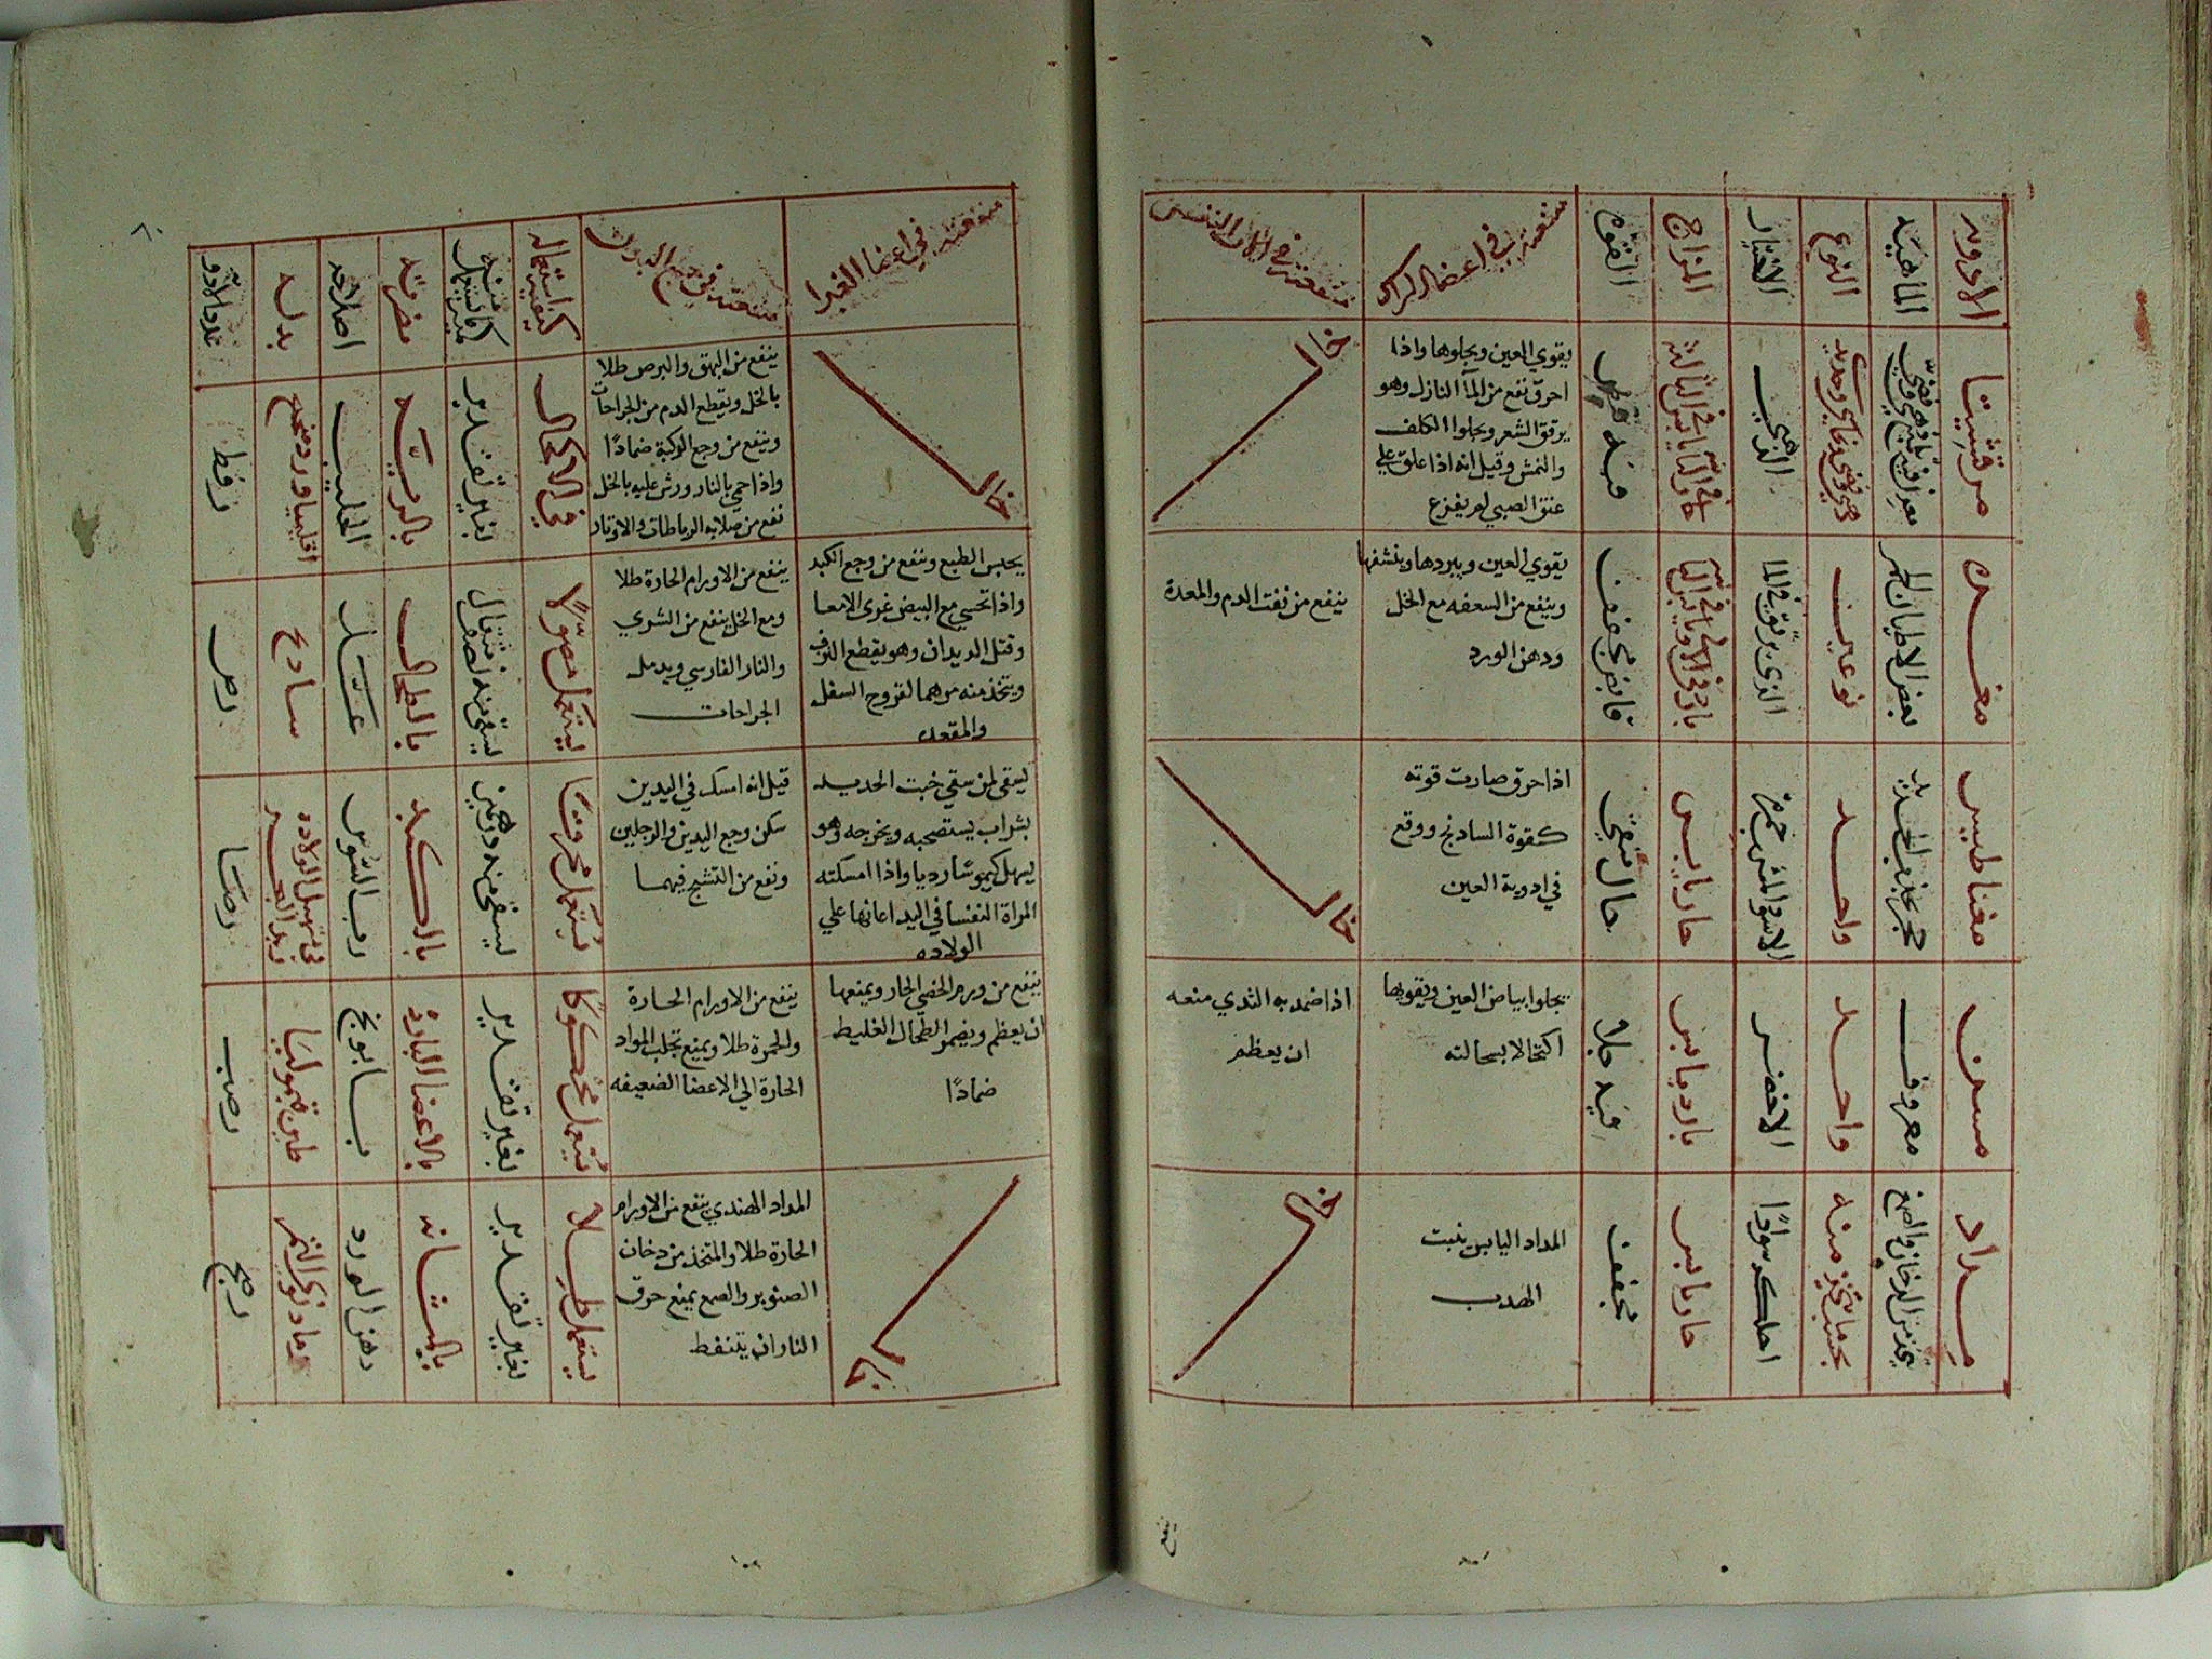 الادويه
الماهيه
النوع
الاختيار
المزاج
القوه
منفعته في اعضا الراس
منفعته في الات النفس
مرقشيثا
الذهبي
يقوي العين ويجلوها واذا
احرق نفع من المآ النازل وهو
يرقق الشعر ويجلوا الكلف
والنمش وقيل انه اذا علق علي
عنق الصبي لم يفزع
خال
مغره
بعض الاطيان الحمر
نوعين
قابض مجفف
يقوي العين ويبردها وينشفها
وينفع من السعفه مع الخل
ودهن الورد
ينفع من نفث الدم والمعدة
مغناطيس
حجر يجذب الحديد
واحد
حار يابس
جال منقي
اذا حرق صارت قوته
كقوة السادنج ووقع
في ادوية العين
خال
مسن
معروف
واحد
الاخضر
بارد يابس
فيه جلاو
يجلوا بياض العين ويقويها
اكتحالا بسحالته
اذا ضمد به الثدي منعه
ان يعظم
مداد
يتخذ من الدخان والصمغ
بحسب ما يتخذ منه
احلكه سوادًا
حار يابس
مجفف
المداد اليابس ينبت
الهدب
خال
منفعته في اعضا الغدا
منفعته في جميع البدن
كيفية استعماله
كمية ما يستعمل منه
مضرته
اصلاحه
بدله
عدد الادويه
خال
ينفع من البهق والبرص طلا
بالخل ويقطع الدم من الجراحات
وينفع من وجع الركبة ضمادًا
واذا حمي بالنار ورش عليه بالخل
نفع من صلابه الرباطات والاوتار
في الاكحال
بغير تقدير
بالريه
الحليب
يحبس الطبع وينفع من وجع الكبد
واذا تحسي مع البيض غري الامعا
وقتل الديدان وهو يقطع النزف
ويتخذ منه مرهما لقروح السفل
والمقعده
ينفع من الاورام الحارة طلا
ومع الخل ينفع من الشري
والنار الفارسي ويدمل
الجراحات
يستعمل مصولًا
يسقي منه نصف مثقال
بالطحال
عسل
سادج
يسقي لمن سقي خبث الحديد
بشراب يستصحبه ويخرجه وهو
يسهل كيموسًا رديا واذا امسكته
المراة النفسا في اليد اعانها علي
الولاده
قيل انه امسك في اليدين
سكن وجع اليدين والرجلين
ونفع من التشنج فيهما
يستعمل محرقًا
يسقي منه درهمين
بالكبد
رب السوس
في تسهيل الولاده
زبد البحر
ينفع من ورم الخصي الحار ويمنعها
ان يعظم ويضمر الطحال الغليظ
ضمادًا
ينفع من الاورام الحارة
والحمرة طلا ويمنع تجلب المواد
الحارة الي الاعضا الضعيفه
يستعمل محكوكًا
بغير تقدير
بالاعضا البارده
بابونج
طين قيموليا
المداد الهندي ينفع من الاورام
الحارة طلا والمتخذ من دخان
الصنوبر والصمغ يمنع حرق
النار ان يتنفط
يستعمل طلا
بغير تقدير
بالمثانه
دهن الورد